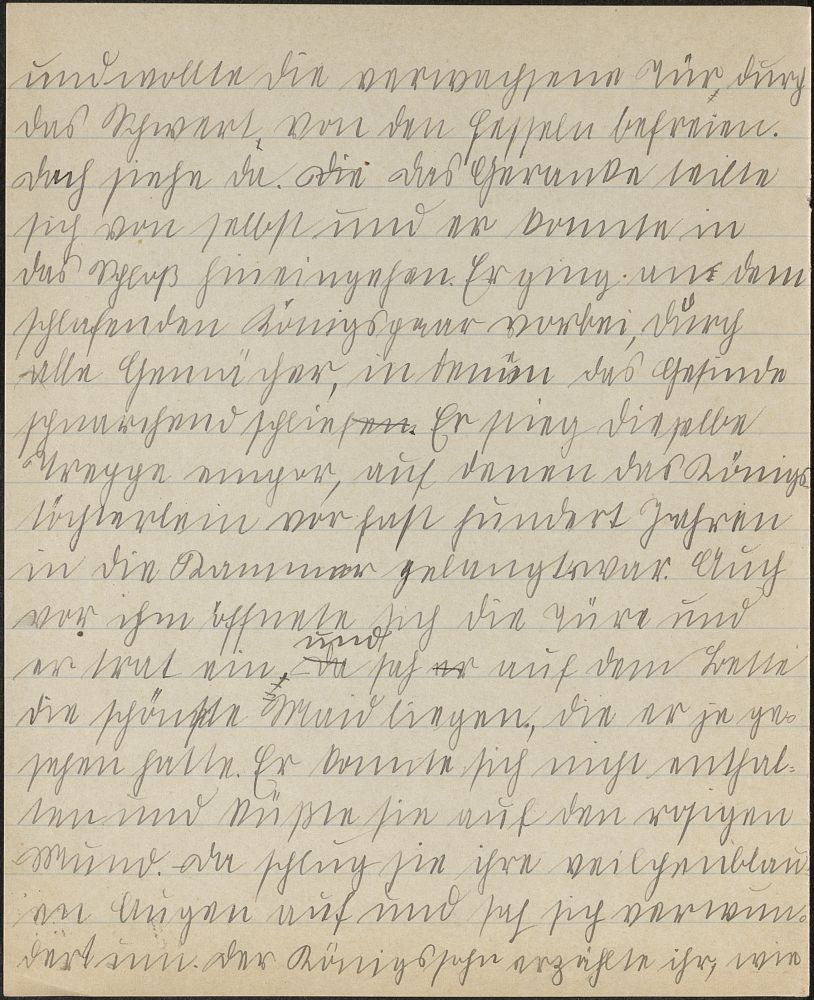 und wollte die verwachsene Tür, durch
das Schwert, von den Fesseln befreien.
Doch siehe da. Die das Geranke teilte
sich von selbst und er konnte in
das Schloß hineingehen. Er ging an dem
schlafenden Königspaar vorbei, durch
alle Gemächer, in denen das Gesinde
schnarchend schliefen. Er stieg dieselbe
Treppe empor, auf denen das Königs
töchterlein vor fast hundert Jahren
in die Kammer gelangt war. Auch
vor ihm öffnete sich die Türe und
er trat ein. Da und sah er auf dem Bette
die schönste Maid liegen, die er je ge-
sehen hatte. Er konnte sich nicht enthal-
ten und küßte sie auf den rosigen
Mund. Da schlug sie ihre veilchenblau
en Augen auf und sah sich verwun-
dert um. Der Königssohn erzählte ihr, wie